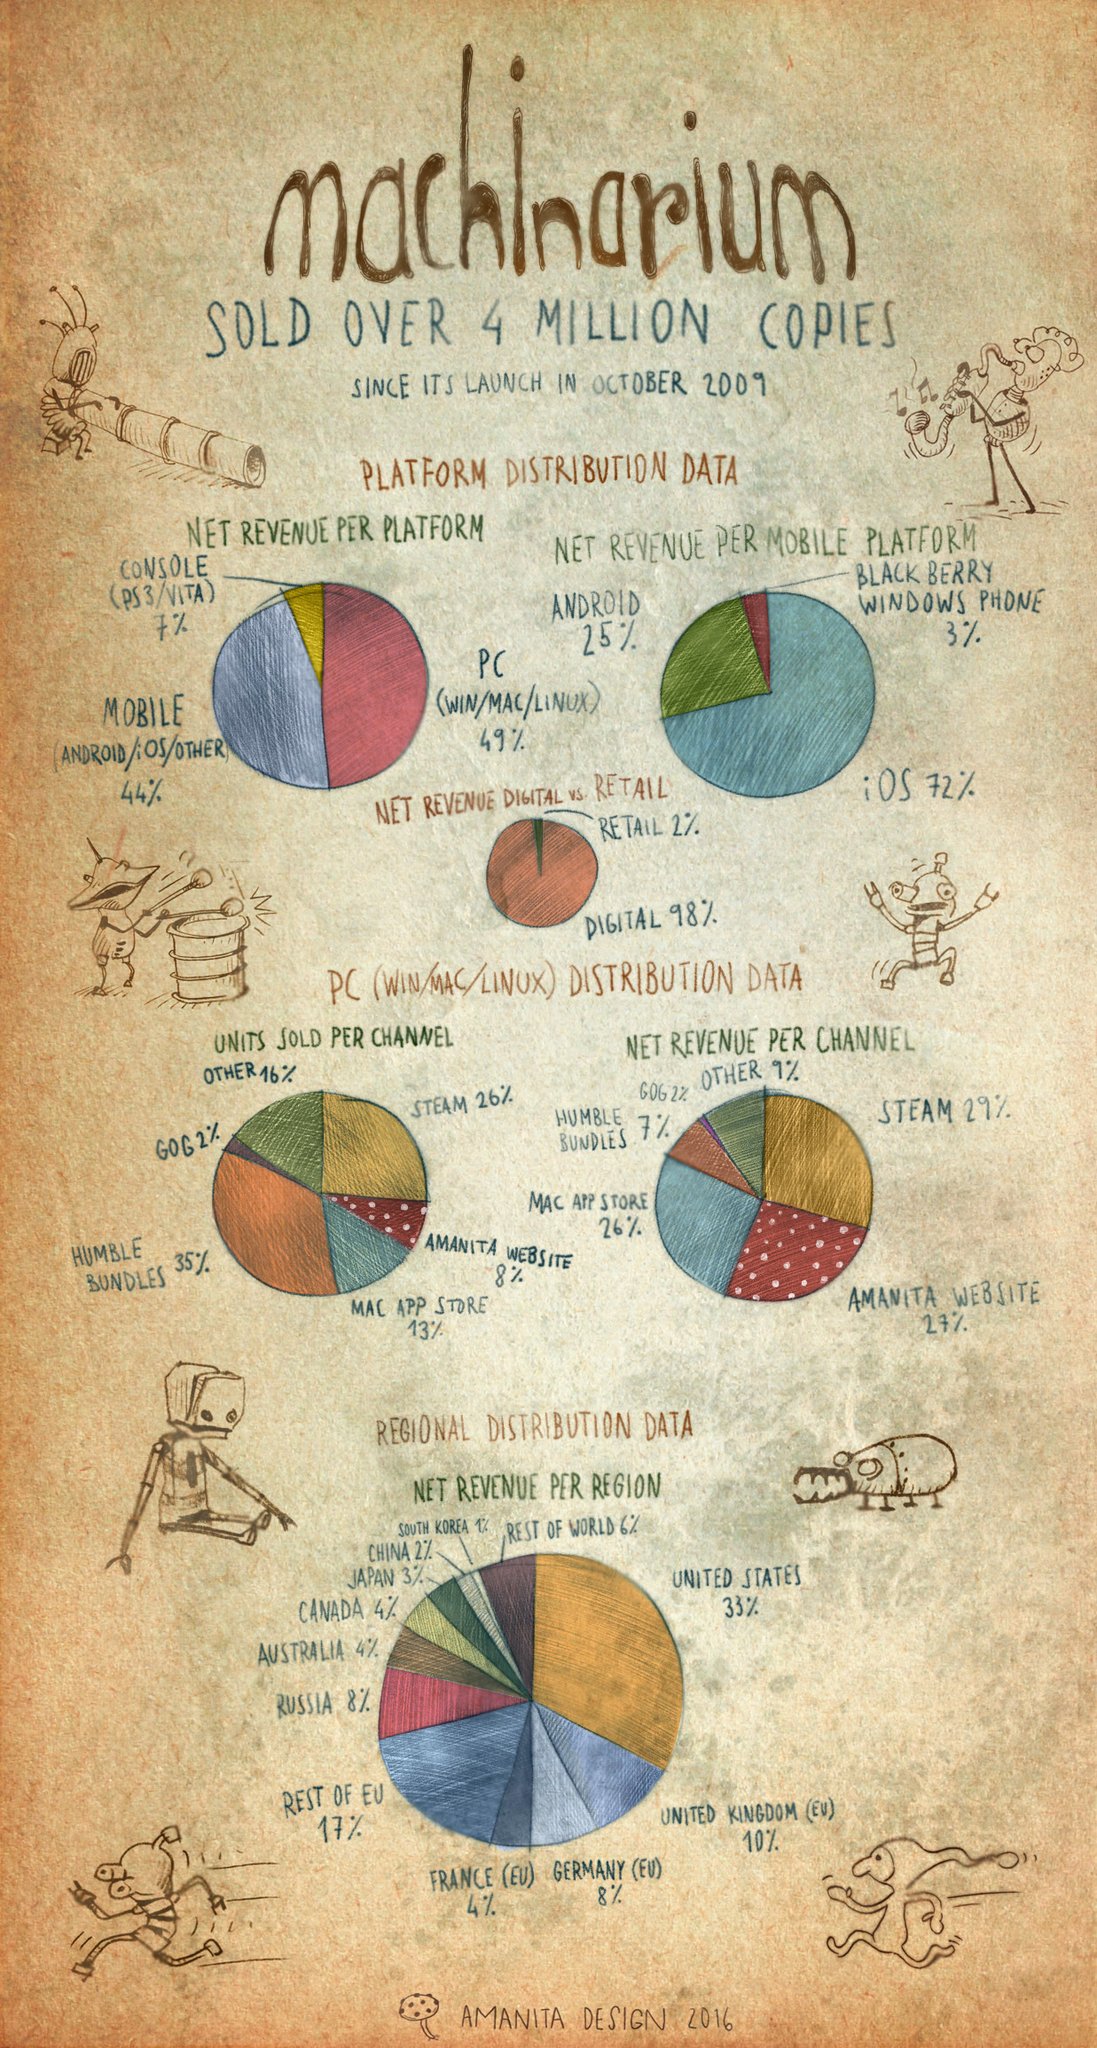 machinarium
SOLD OVER 4 MILLION COPIES
SINCE ITS LAUNCH IN OCTOBER 2009
PLATFORM DISTRIBUTION DATA
NET REVENUE PER PLATFORM
CONSOLE
(PS3/VITA)
7%
MOBILE
(ANDROID/iOS/OTHER)
44%
PC
(WIN/MAC/LINUX)
49%
NET REVENUE PER MOBILE PLATFORM
ANDROID
25%
BLACK BERRY
WINDOWS PHONE
3%
iOS 72%
NET REVENUE DIGITAL vs. RETAIL
RETAIL 2%
DIGITAL 98%
PC (WIN/MAC/LINUX) DISTRIBUTION DATA
UNITS SOLD PER CHANNEL
OTHER 16%
STEAM 26%
GOG 2%
HUMBLE
BUNDLES 35%
AMANITA WEBSITE
8%
MAC APP STORE
13%
NET REVENUE PER CHANNEL
OTHER 9%
GOG 2%
HUMBLE
BUNDLES 7%
STEAM 29%
MAC APP STORE
26%
AMANITA WEBSITE
27%
REGIONAL DISTRIBUTION DATA
NET REVENUE PER REGION
SOUTH KOREA 1%
REST OF WORLD 6%
CHINA 2%
JAPAN 3%
CANADA 4%
AUSTRALIA 4%
RUSSIA 8%
UNITED STATES
33%
REST OF EU
17%
UNITED KINGDOM (EU)
10%
FRANCE (EU)
4%
GERMANY (EU)
8%
AMANITA DESIGN 2016